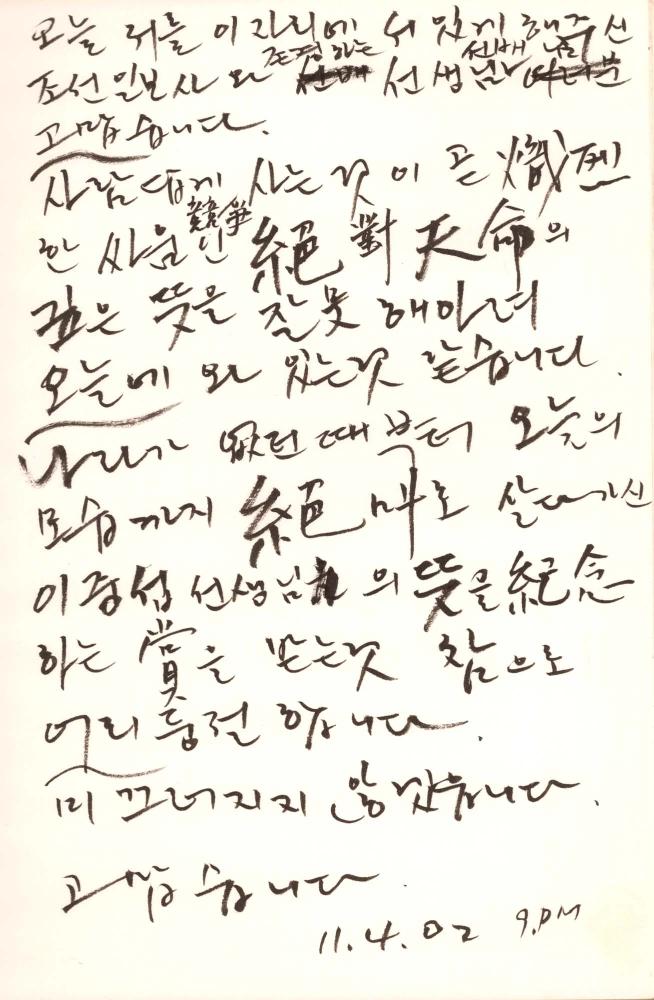 오늘 저를 이 자리에 서 있게 해주신
존경하는 선배님
조선일보사와 선배 선생님 여러분
고맙습니다.
사람답게 사는 것이 곧 熾
競爭
한 싸움인 絕對天命의
깊은 뜻을 잘못 헤아려
오늘에 와 있는것 같습니다.
나라가 없던 때부터 오늘의
모습까지 絕 로 살다가신
이중섭 선생님의 뜻을 紀念
하는 賞을 받는것 참으로
어리둥절 합니다.
미끄러지지 않겠습니다.
고맙습니다.
11.4.02 9.PM